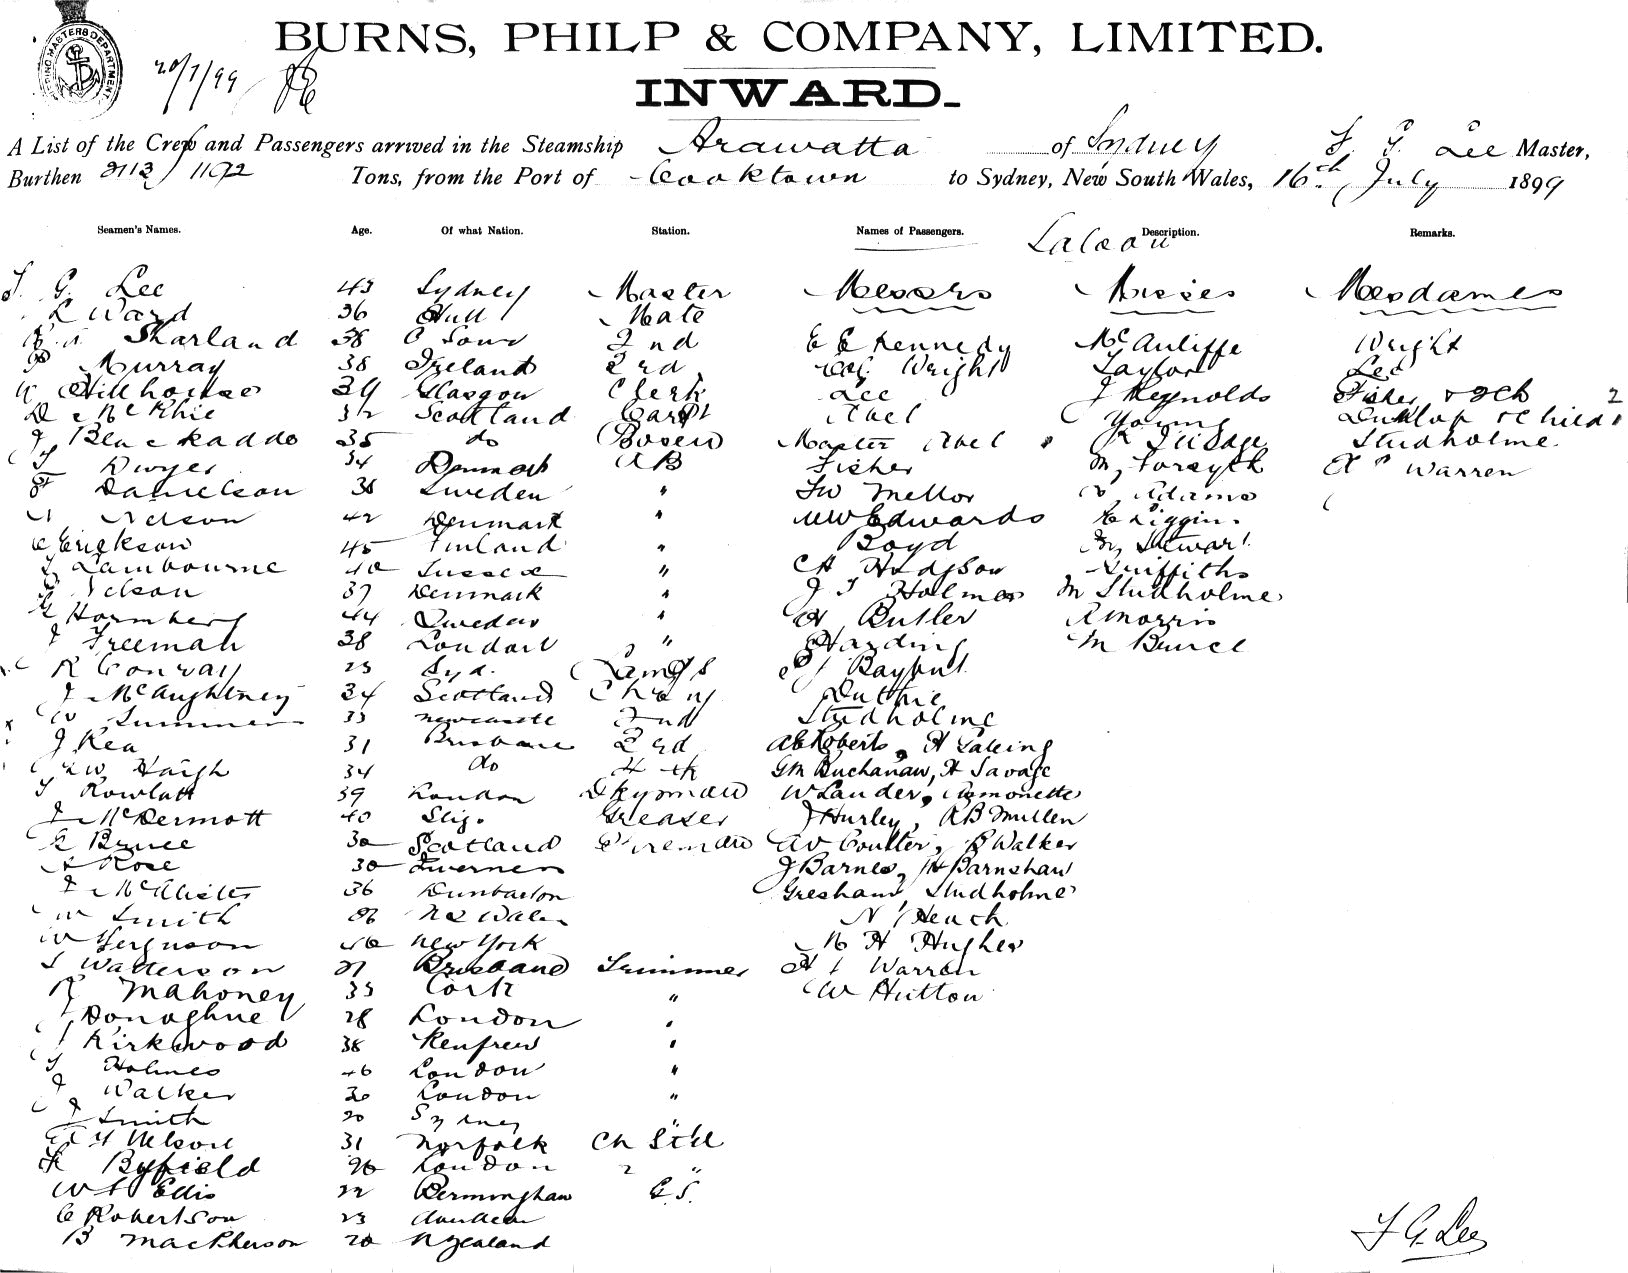 BURNS, PHILP & COMPANY, LIMITED.
20/7/99
INWARD.
A List of the Crew and Passengers arrived in the Steamship Arawatta of Sydney F. G. Lee Master,
Burthen 2113/1192 Tons, from the Port of Cooktown to Sydney, New South Wales, 16th July 1899
Seamen's Names. Age. Of what Nation. Station. Names of Passengers. Description. Remarks.
Saloon
F. G. Lee 43 Sydney Master Messrs Misses Mesdames
L Ward 36 Hull Mate
Sharland 38 2nd E E Kennedy McAuliffe Wright
Murray 38 Ireland 3rd Wright Taylor Lee
Hillhouse 39 Glasgow Clerk Lee J Reynolds Fisher 2
D McKhie 32 Scotland Carpt Abel Young Dunlop & Child
J Blackaddo 35 do Bosen Master Abel Studholme
T Dwyer 34 Denmark AB Fisher M Forsyth Warren
F Danielson 38 Sweden " FW Mellor Adams
Nelson 42 Denmark " WW Edwards Liggins
C Erickson 45 Finland " Boyd M Stewart
Lambourne 40 Sussex " CH Hodgson Griffiths
Nelson 37 Denmark " J T Holmes M Studholme
Hornberg 44 Sweden " H Butler A Morris
J Freeman 38 London " Harding M Bruce
R Conway 23 Syd. Lamps
J McAughtney 34 Scotland Ch Eng Duthie
W Summer 33 Newcastle 2nd Studholme
J Rea 31 Brisbane 3rd AE Roberts,
Haigh 34 do 4th GM Buchanan, H Savage
T Rowlatt 39 London Dkyman W Lauder, Simonette
J McDermott 40 Sligo Greaser J Hurley, RB Millen
G Bruce 30 Scotland Fireman AV Coulter, R Walker
A Rose 30 Inverness J Barnes, H Barnshaw
J McAlister 36 Dunbarton Gresham, Studholme
W Smith 26 NS Wales N Heach
W Ferguson 40 New York H Hughes
S Watterson 27 Brisbane Trimmer Warren
R Mahoney 35 Cork " W Hutton
J Donoghue 28 London "
J Kirkwood 38 Renfrew "
T Holmes 46 London "
J Walker 30 London "
J Smith 20 Sydney "
Nelson 31 Norfolk Ch Std
Byfield 26 London "
Ellis 22 Bermingham G.S.
C Robertson 23 Aberdeen
B MacPherson 20 N Zealand
F G. Lee